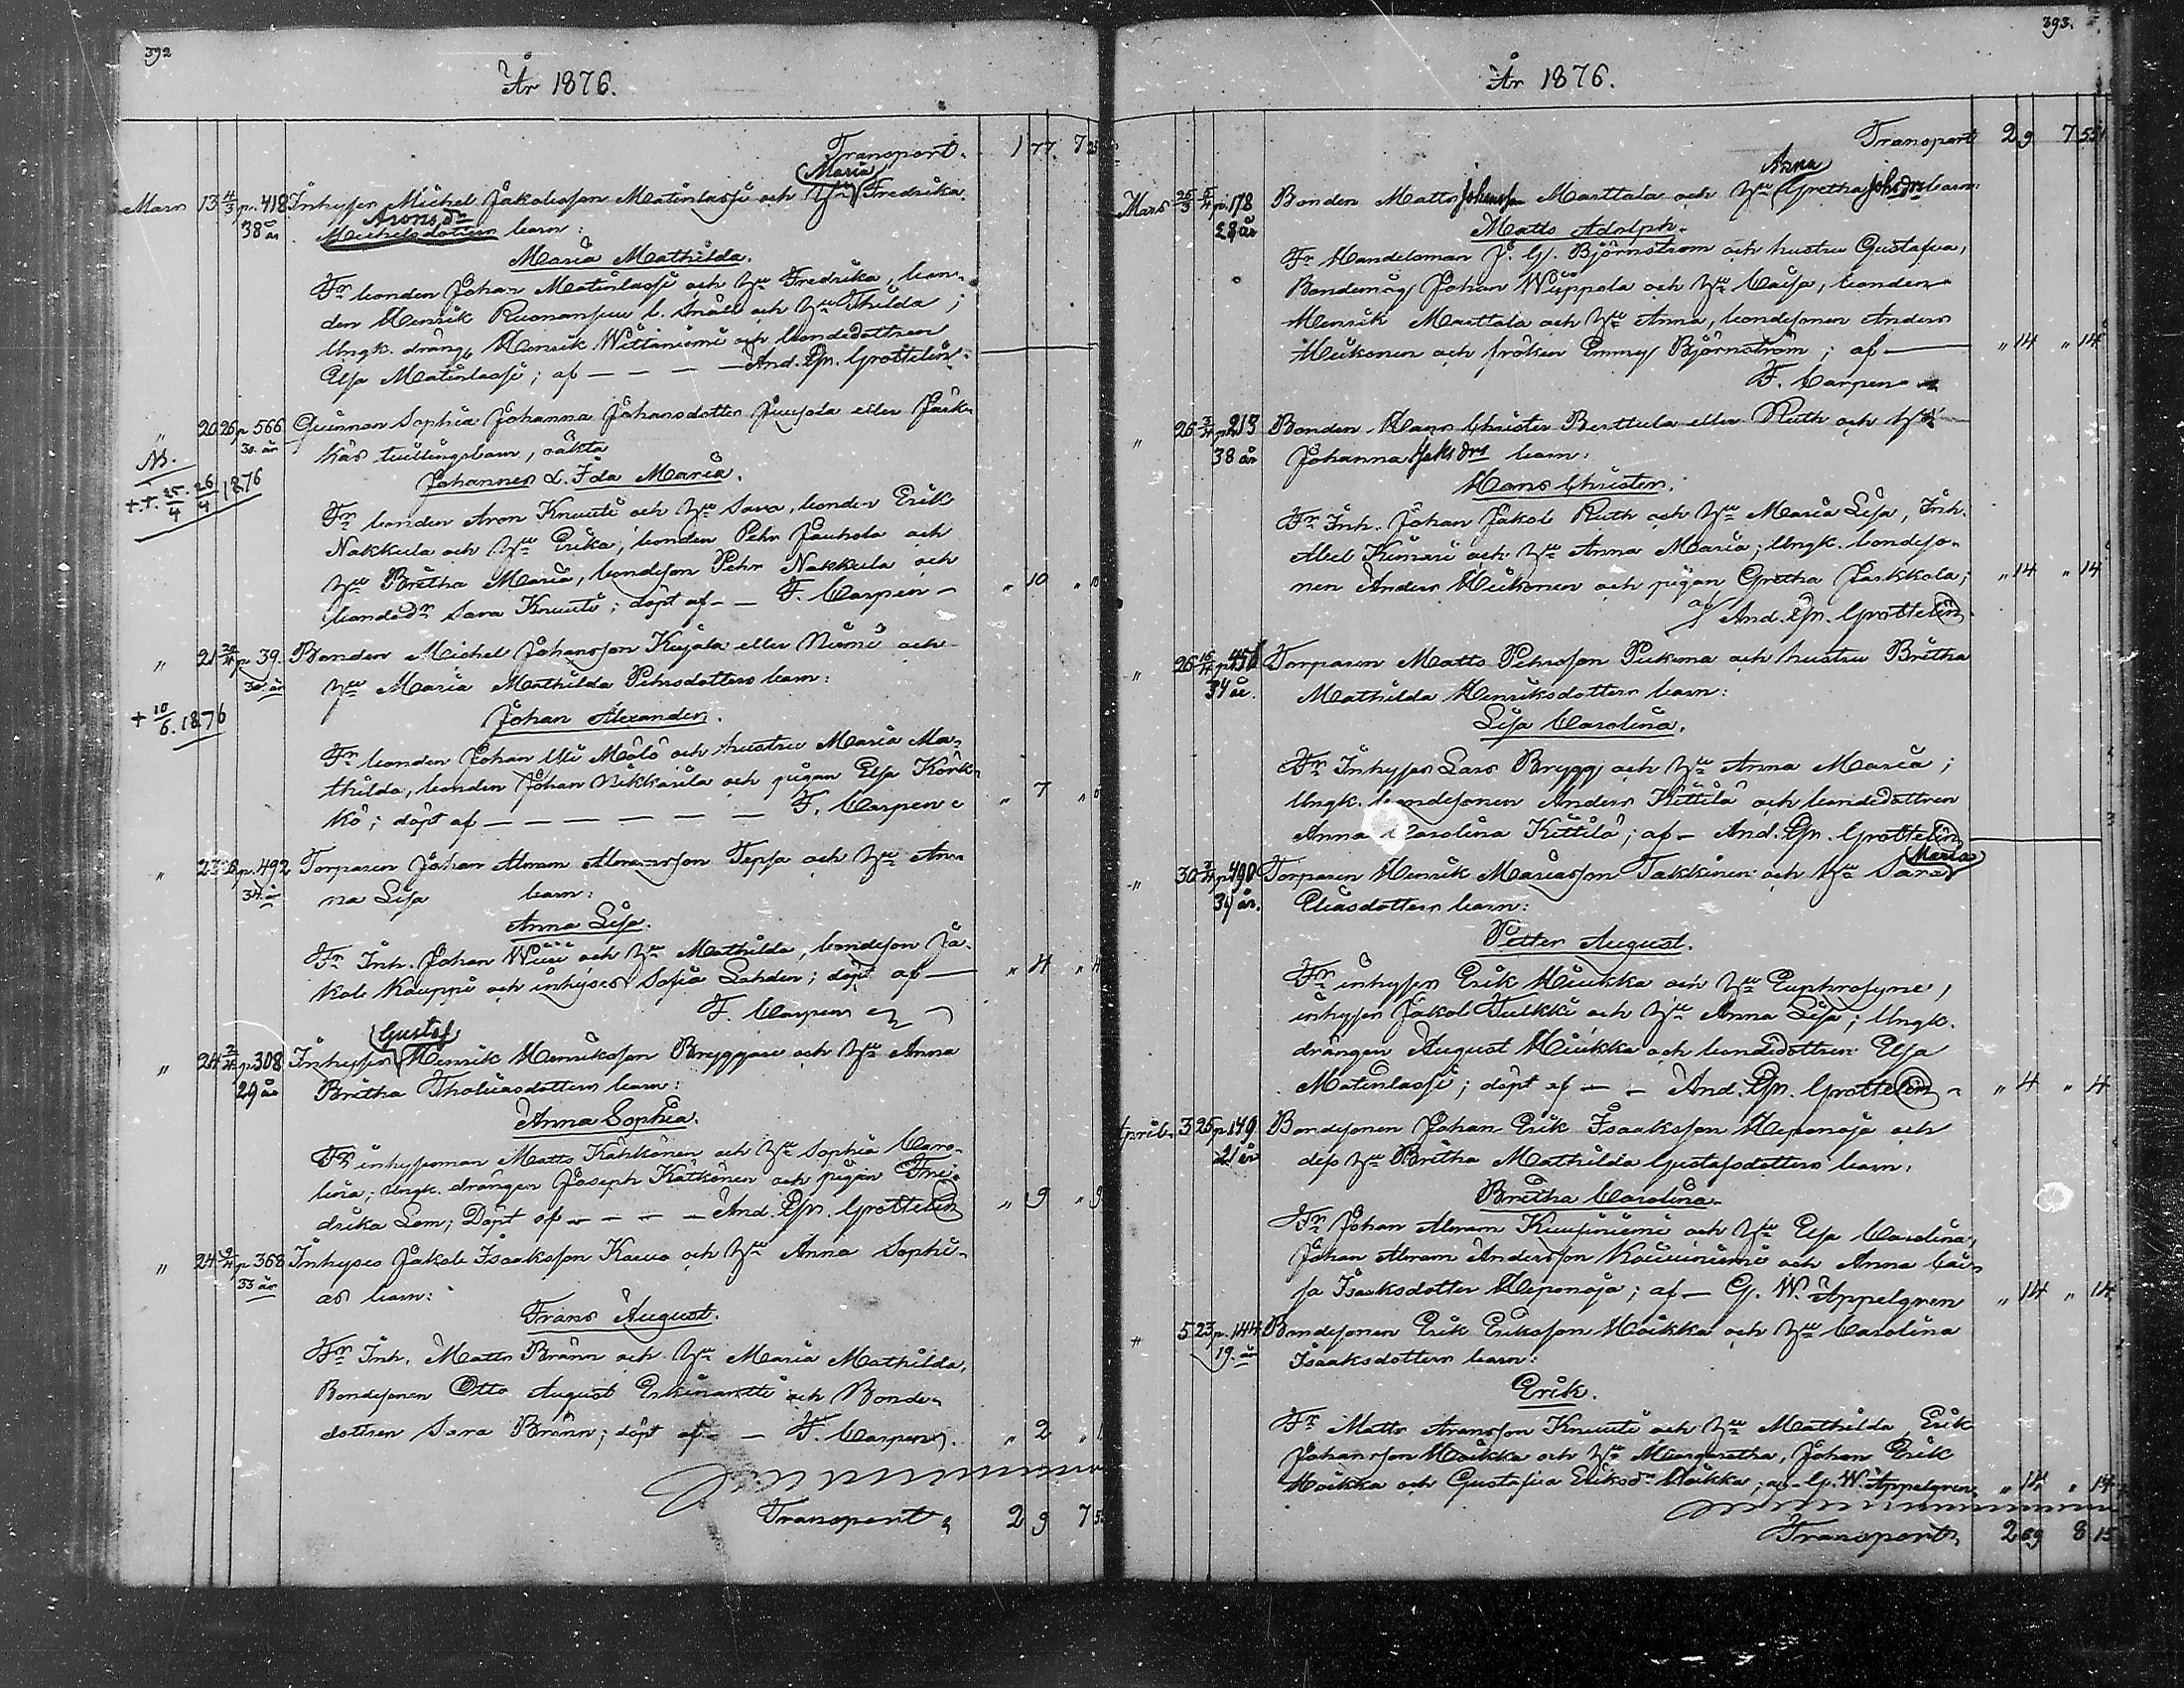 392
År 1876.
Transport. 1 77. 7 25
Maria
Mars 13 14/3 p. 418 Inhysen Michel Jakobsson Matinlassi och Hu Fredrika
Aronsdr
38 år Michelsdotters barn:
Maria Mathilda.
Fr bonden Johan Matinlassi och Hu Fredrika, bon-
den Henrik Ruonansuu l. Snåla och Hu Thilda;
Ungk. dräng Henrik Wittaniemi och bondedottren
Elsa Matinlassi; af — — — — And. Gr. Grottelin.
" 20 26 p 566 Quinnan Sophia Johanna Johansdotter Juusola eller Jark-
30 år
kas tvillingbarn, oäkta
Johannes & Ida Maria.
++ 25/4 26/4 1876
Fr bonden Aron Knuuti och Hu Sara, bonden Erik
Nakkula och Hu Erika, bonden Pehr Jauhola och
Hu Britha Maria, bondeson Pehr Nakkula och
bondedr Sara Knuuti; döpt af — — F. Carpen — " 10 " 10
" 21 20/4 p 39. Bonden Michel Johansson Kujala eller Niemi och
30 år
Hu Maria Mathilda Pehrsdotters barn:
+ 10/6.1876
Johan Alexander.
Fr bonden Johan Uli Mölö och hustru Maria Ma-
thilda, bonden Johan Nikkarila och pigan Elsa Körk-
kö; döpt af — — — — — — F. Carpen " 7
" 23 26 p. 492 Torparen Johan Abram Abramsson Tepsa och Hu An-
34 år
na Lisa barn:
Anna Lisa.
Fr Inh. Johan Wiiri och Hu Mathilda, bondeson Ja-
kob Kauppi och inhyses Sofia Lahden; döpt af — " 4 " 4
F. Carpen
Gustaf
" 24 2/4 p 308 Inhysen Henrik Henriksson Bryggare och Hu Anna
29 år Britha Tholiasdotters barn:
Anna Sophia.
Fr inhysman Matts Kähkönen och Hu Sophia Caro-
lina; Ungk. drängen Joseph Kätkönen och pigan Fre-
drika Lom; Döpt af — — — — And. Gr. Grottelin " 9 " 9
" 24 2/4 p 368 Inhyses Jakob Isaksson Karvo och Hu Anna Sophi-
33 år
as barn:
Frans August.
Fr Inh. Matts Bränn och Hu Maria Mathilda,
Bondesonen Otto August Erkinantti och Bonde-
dottren Sara Bränn; döpt af — — F. Carpen. " 2
Transport 2 9 7
393.
År 1876.
Transport 2 9 7 55
Anna
Mars 25/3 5/4 p. 178 Bonden Matts Johansson Marttala och Hu Gretha Johsdrs barn:
28 år
Matts Adolph.
Fr Handelsman J. G. Björnström och hustru Gustafva,
Bondemåg Johan Wuppola och Hu Caisa, bonden
Henrik Marttala och Hu Anna, bondesonen Anders
Heikonen och fröken Emmy Björnström; af — " 14 " 14
F. Carpen
" 26 2/4 p. 213 Bonden Hans Christer Berttula eller Ruth och Hu
38 år Johanna Jaks drs barn:
Hans Christer.
Fr Inh. Johan Jakob Ruth och Hu Maria Lisa, Inh.
Abel Kumari och Hu Anna Maria; Ungk. bondeso-
nen Anders Heikonen och pigan Gretha Jarkkola; " 14 " 14
af And. Gr. Grottelin
" 26 16/4 p. 451 Torparen Matts Pehrsson Pukema och hustru Britha
34 år. Mathilda Henriksdotters barn:
Lisa Carolina.
Fr Inhyses Lars Brygg och Hu Anna Maria;
Ungk. bondesonen Anders Kittilä och bondedottren
Anna Carolina Kittilä; af — And. Gr. Grottelin
Maria
" 30 2/4 p. 490 Torparen Henrik Mariasson Takkinen och Hu Sara
34 år. Eliasdotters barn:
Petter August.
Fr inhyses Erik Hiukka och Hu Euphrosyne,
inhyses Jakob Tulkki och Hu Anna Lisa; Ungk.
drängen August Hiukka och bondedottren Elsa
Matinlassi; döpt af — — And. Gr. Grottelin " 4 " 4
April 3 25 p. 149 Bondesonen Johan Erik Isaksson Heponoja och
21 år dess Hu Britha Mathilda Gustafsdotters barn:
Britha Carolina.
Fr Johan Abram Kuusiniemi och Hu Elsa Carolina,
Johan Abram Andersson Kouvuniemi och Anna Cai-
sa Isaksdotter Heponoja; af — G. W. Appelgren " 14 " 14
" 5 23 p. 144 Bondesonen Erik Eriksson Hoikka och Hu Carolina
19 år Isaaksdotters barn:
Erik.
Fr Matts Aronsson Knuuti och Hu Mathilda, Erik
Johansson Hoikka och Hu Margaretha, Johan Erik
Hoikka och Gustafva Eriksdr Hoikka; af — G. W. Appelgren " 14 " 14
Transport 2 69 8 15